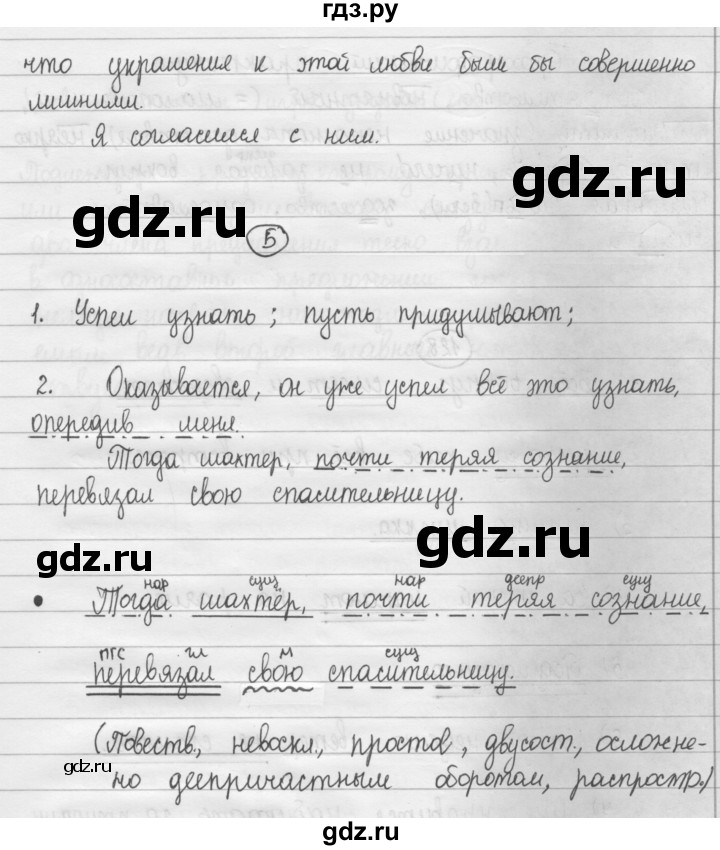 гдз.ру
что украшения к этой любви были бы совершенно
лишними.
Я согласился с ним.
gdz.ru gdz.ru
Б
1. Успел узнать; пусть придумывают;
2. Оказывается, он уже успел всё это узнать,
опередив меня.
Тогда шахтер, почти теряя сознание,
перевязал свою спасительницу.
gdz.ru gdz.ru
нар сущ нар деепр сущ
• Тогда шахтёр, почти теряя сознание,
ПГС гл м сущ
перевязал свою спасительницу.
(Повеств., невоскл., простое, двусост., осложне-
gdz.ru
но деепричастным оборотом, распростр.)
gdz.ru